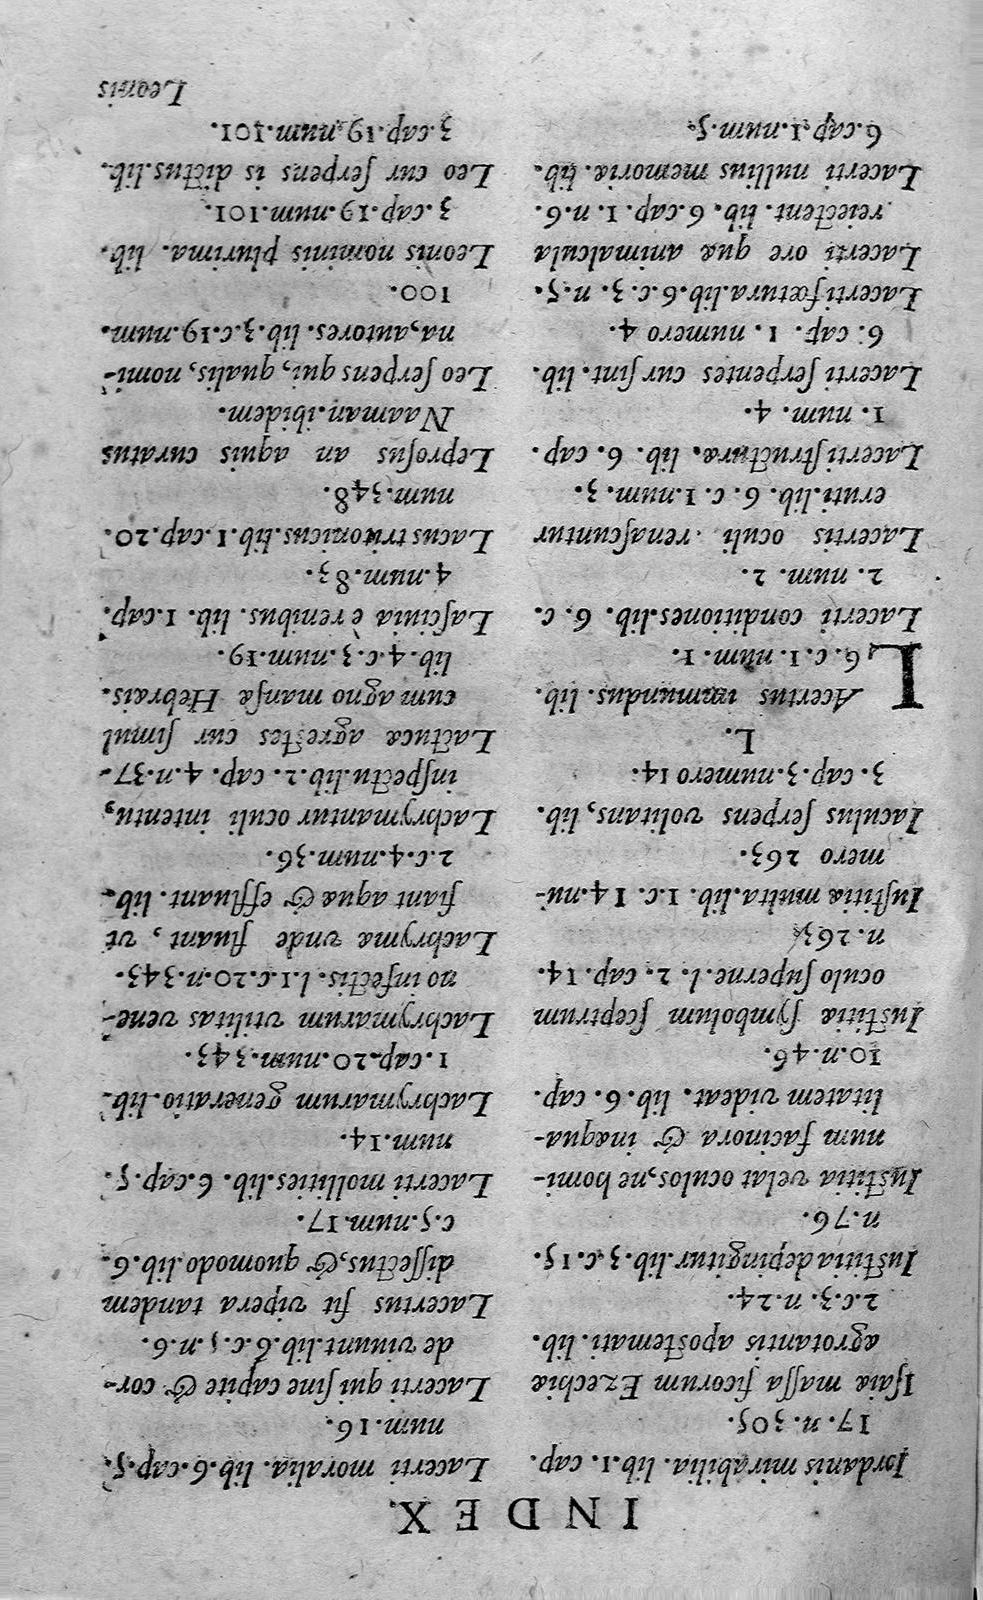 INDEX.
Iordanis mirabilia. lib. 1. cap.
17. n. 305.
Isaiæ massa ficorum Ezechiæ
ægrotantis apostemati. lib.
2. c. 3. n. 24.
Iustitia depingitur. lib. 3. c. 15.
n. 76.
Iustitia velat oculos, ne homi-
num facinora & inæqua-
litatem videat. lib. 6. cap.
10. n. 46.
Iustitiæ symbolum sceptrum
oculo superne. l. 2. cap. 14.
n. 263
Iustitiæ multa. lib. 1. c. 14. nu-
mero 263.
Iaculus serpens volitans, lib.
3. cap. 3. numero 14.
L.
LAcertus immundus. lib.
6. c. 1. num. 1.
Lacerti conditiones. lib. 6. c.
2. num. 2.
Lacertis oculi renascuntur
eruti. lib. 6. c. 1. num. 3.
Lacerti structura. lib. 6. cap.
1. num. 4.
Lacerti serpentes cur sint. lib.
6. cap. 1. numero 4.
Lacerti fœtura. lib. 6. c. 3. n. 5.
Lacerti ore quæ animalcula
reiectent. lib. 6. cap. 1. n. 6.
Lacerti nullius memoriæ. lib.
6. cap. 1. num. 5.
Lacerti moralia. lib. 6. cap. 5.
num. 16.
Lacerti qui sine capite & cor-
de viuunt. lib. 6. c. 3. n. 6.
Lacertus sit vipera tandem
dissectus, & quomodo. lib. 6.
c. 5. num. 17.
Lacerti mollities. lib. 6. cap. 5.
num. 14.
Lachrymarum generatio. lib.
1. cap. 20. num. 343.
Lachrymarum vtilitas vene-
no infectis. l. 1. c. 20. n. 343.
Lachryma vnde fluant, vt
fiant aquæ & effluant. lib.
2. c. 4. num. 36.
Lachrymantur oculi intentu,
inspectu. lib. 2. cap. 4. n. 37.
Lactucæ agrestes cur simul
cum agno mansæ Hebræis.
lib. 4. c. 3. num. 19.
Lasciuia è renibus. lib. 1. cap.
4. num. 83.
Lacus tritonicus. lib. 1. cap. 20.
num. 348.
Leprosus an aquis curatus
Naaman. ibidem.
Leo serpens qui, qualis, nomi-
na, autores. lib. 3. c. 19. num.
100.
Leonis nominis plurima. lib.
3. cap. 19. num. 101.
Leo cur serpens is dictus. lib.
3. cap. 19. num. 101.
Leonis